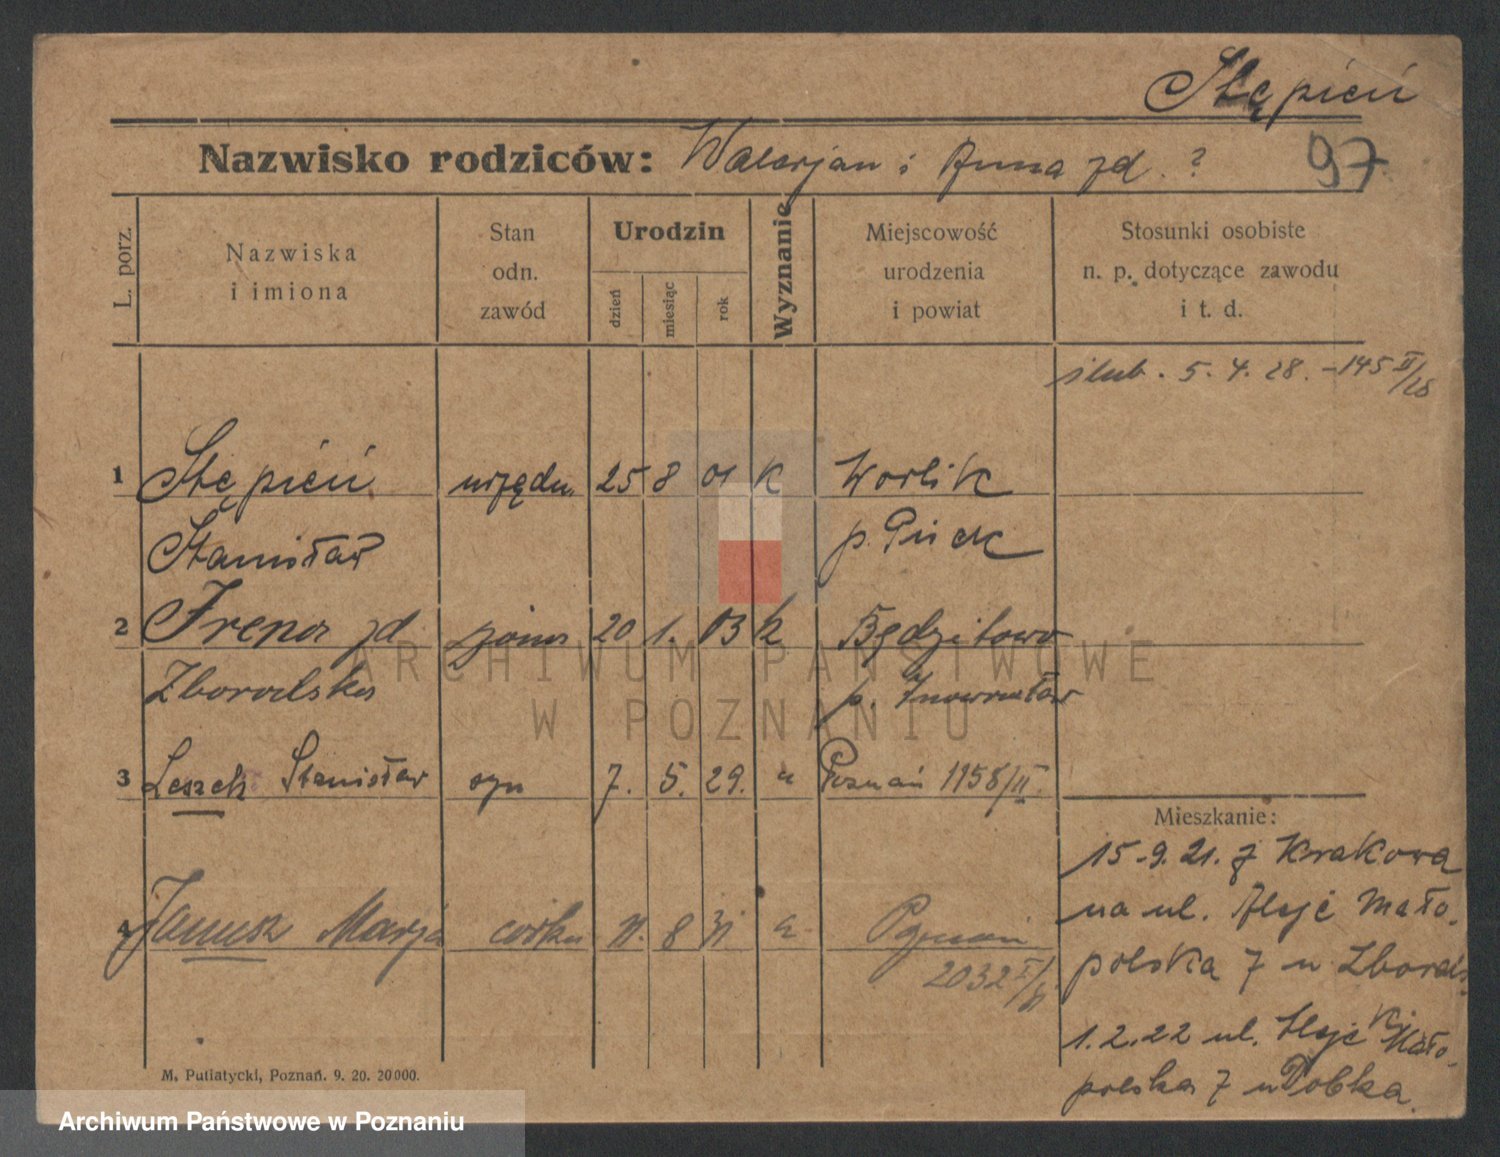 Stępień
Nazwisko rodziców: Walerjan i Anna zd. ?
97
L. porz.
Nazwiska
i imiona
Stan
odn.
zawód
Urodzin
dzień
miesiąc
rok
Wyznanie
Miejscowość
urodzenia
i powiat
Stosunki osobiste
n. p. dotyczące zawodu
i t. d.
ślub. 5. 4. 28. - 145 II/28
1 Stępień urzędn. 25 8 01 K Worlik
Stanisław p. Pisek
2 Irena zd. żona 20 1. 03 k
Zborodska p. Inowrocław
3 Leszek Stanisław syn 7. 5. 29. " Poznań 1158/II.
Mieszkanie:
15.9.21. z Krakowa
na ul. Aleje Mało-
polska 7 u
4 Janusz Marja córka 11. 8 31 " Poznań
2032 I/31
1.2.22 ul. Aleje Mało-
polska 7 u Dobka.
M. Putiatycki, Poznań. 9. 20. 20000.
ARCHIWUM PAŃSTWOWE
W POZNANIU
Archiwum Państwowe w Poznaniu